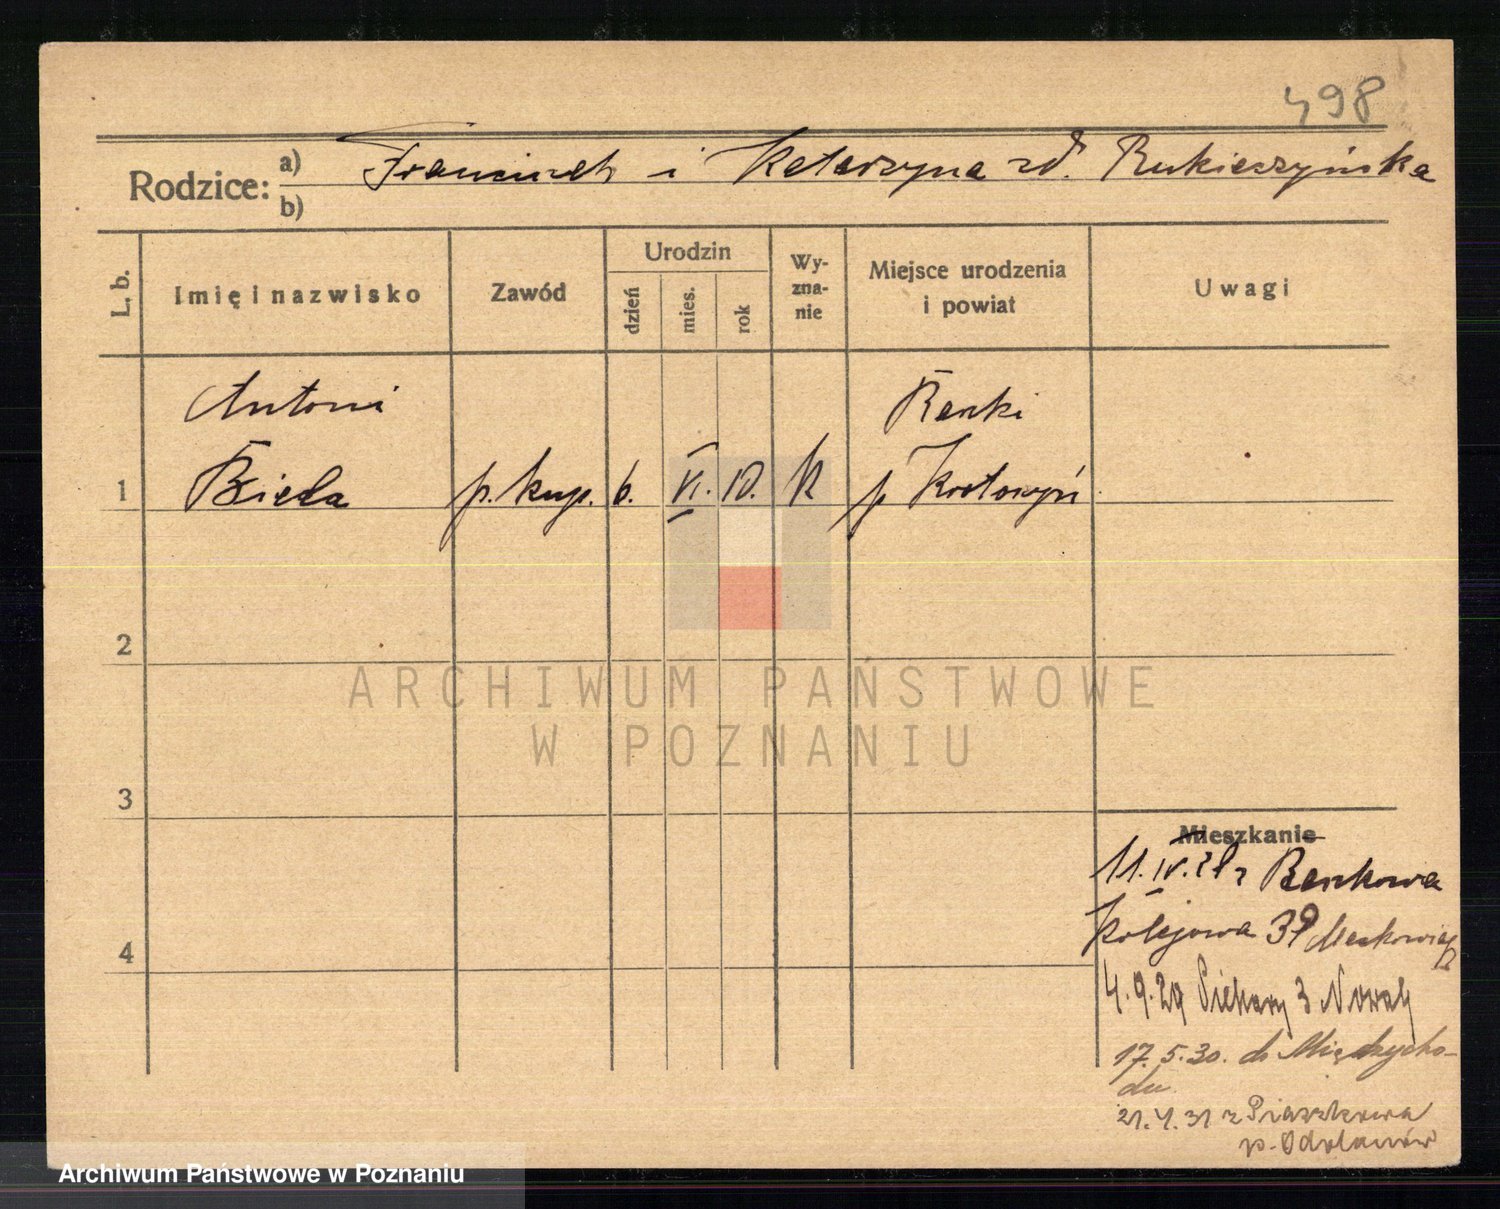 498
Rodzice: a) Franciszek i Katarzyna zd. Rukieszyńska
b)
L. b.
Imię i nazwisko
Zawód
Urodzin
dzień
mies.
rok
Wy-
zna-
nie
Miejsce urodzenia
i powiat
Uwagi
Antoni
Banki
1 Biela p. kup. 6. VI. 10. k p Krotoszyń
2
3
4
Mieszkanie
11.IV.28 z Benkowa
Kolejowa 39
4.9.29 Piekary 3 Nowak
17.5.30. do Międzycho-
du
21.4.31 z Piaszkowa
p. Odolanów
ARCHIWUM PAŃSTWOWE
W POZNANIU
Archiwum Państwowe w Poznaniu